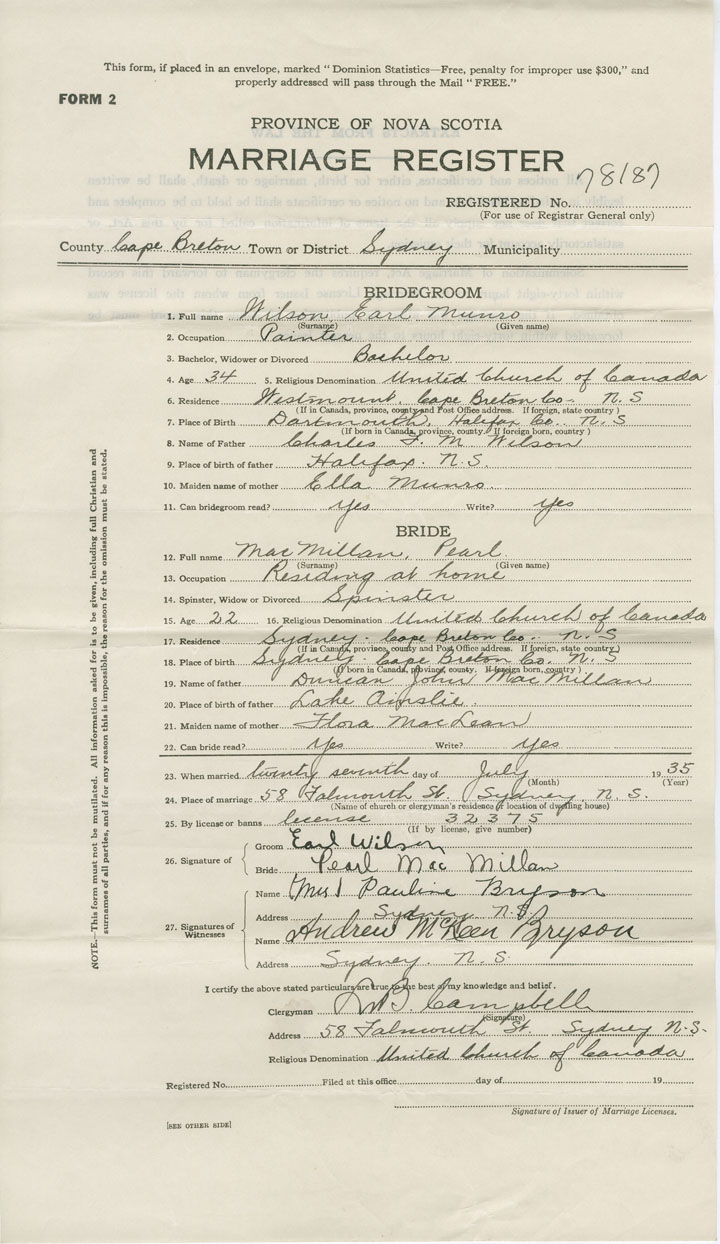 This form, if placed in an envelope, marked "Dominion Statistics—Free, penalty for improper use $300," and
properly addressed will pass through the Mail "FREE."
FORM 2
PROVINCE OF NOVA SCOTIA
MARRIAGE REGISTER
78187
REGISTERED No.
(For use of Registrar General only)
County Cape Breton Town or District Sydney Municipality
BRIDEGROOM
1. Full name Wilson, Earl Munro
(Surname) (Given name)
2. Occupation Painter
3. Bachelor, Widower or Divorced Bachelor
4. Age 34 5. Religious Denomination United Church of Canada
6. Residence Westmount, Cape Breton Co. N. S
(If in Canada, province, county and Post Office address. If foreign, state country)
7. Place of Birth Dartmouth, Halifax Co. N. S
(If born in Canada, province, county. If foreign born, country)
8. Name of Father Charles F. M Wilson
9. Place of birth of father Halifax. N. S.
10. Maiden name of mother Ella Munro
11. Can bridegroom read? Yes Write? Yes
BRIDE
12. Full name MacMillan, Pearl
(Surname) (Given name)
13. Occupation Residing at home
14. Spinster, Widow or Divorced Spinster
15. Age 22 16. Religious Denomination United Church of Canada
17. Residence Sydney. Cape Breton Co. N. S
(If in Canada, province, county and Post Office address. If foreign, state country)
18. Place of birth Sydney. Cape Breton Co. N. S
(If born in Canada, province, county. If foreign born, country)
19. Name of father Duncan John MacMillan
20. Place of birth of father Lake Ainslie.
21. Maiden name of mother Flora MacLean
22. Can bride read? Yes Write? Yes
23. When married twenty seventh day of July 1935
(Month) (Year)
24. Place of marriage 58 Falmouth St. Sydney N. S.
(Name of church or clergyman's residence or location of dwelling house)
25. By license or banns license 32375
(If by license, give number)
26. Signature of
Groom Earl Wilson
Bride Pearl Mac Millan
27. Signatures of Witnesses
Name (Mrs) Pauline Bryson
Address Sydney N. S
Name Andrew McKeen Bryson
Address Sydney. N. S.
I certify the above stated particulars are true to the best of my knowledge and belief.
Clergyman Campbell
(Signature)
Address 58 Falmouth St. Sydney N. S.
Religious Denomination United Church of Canada
Registered No. Filed at this office day of 19
Signature of Issuer of Marriage Licenses.
[SEE OTHER SIDE]
NOTE.—This form must not be mutilated. All information asked for is to be given, including full Christian and
surnames of all parties, and if for any reason this is impossible, the reason for the omission must be stated.